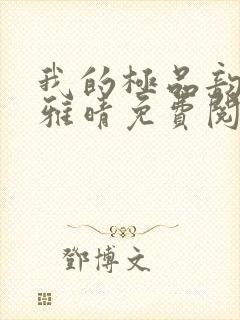 我的極品
雅晴免費閱
鄧博文